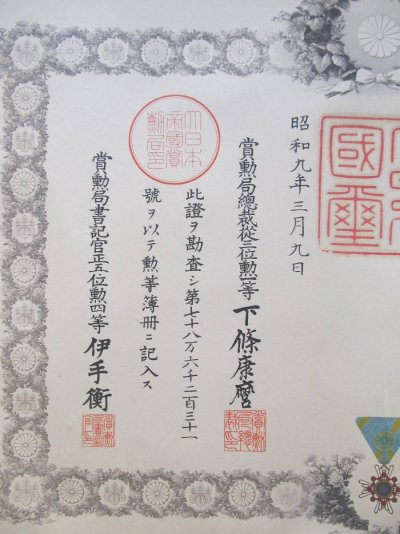 國璽
昭和九年三月九日
賞勲局總裁從三位勲一等 下條康麿
大日本帝國賞勲局印
此證ヲ勘査シ第七十八万六千二百三十一
號ヲ以テ勲等簿册ニ記入ス
賞勲局書記官正五位勲四等 伊手衡